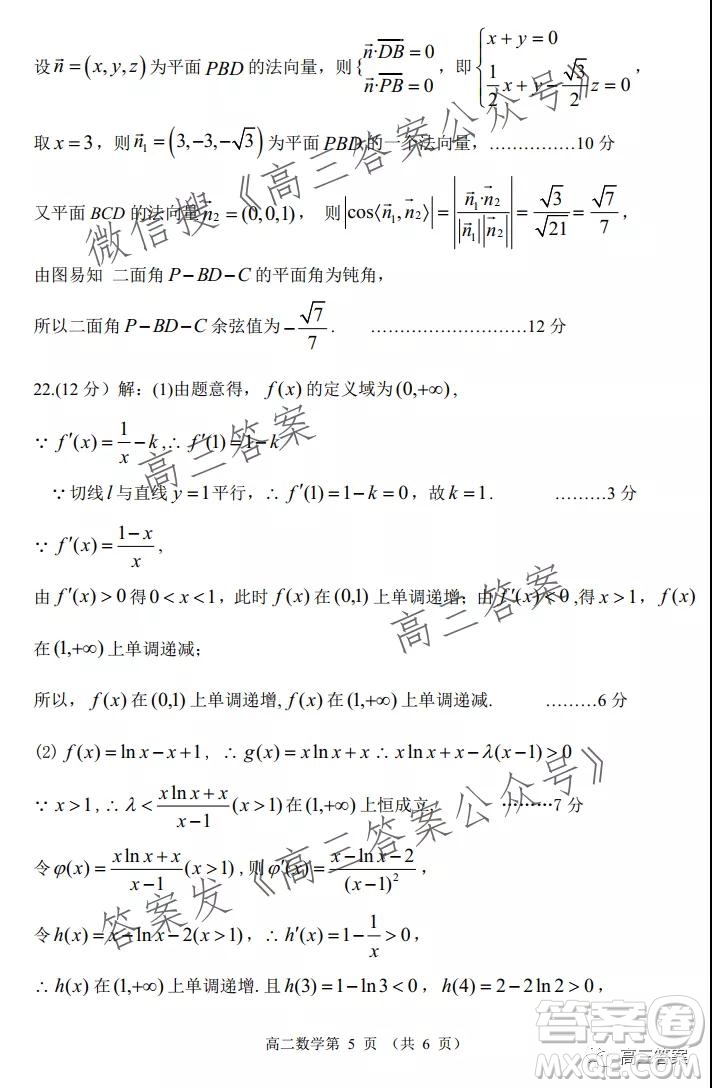 设 n⃗ = (x, y, z) 为平面 PBD 的法向量，则 { n⃗·DB = 0, n⃗·PB = 0 ，即 { x + y = 0, 1/2 x + y − √3/2 z = 0 ，
取 x = 3，则 n⃗₁ = (3,−3,−√3) 为平面 PBD 的一个法向量，……………10 分
又平面 BCD 的法向量 n⃗₂ = (0,0,1)， 则 |cos⟨n⃗₁, n⃗₂⟩| = |n⃗₁·n⃗₂ / |n⃗₁||n⃗₂|| = √3/√21 = √7/7，
由图易知 二面角 P − BD − C 的平面角为钝角，
所以二面角 P − BD − C 余弦值为 −√7/7 . ………………………12 分
22.(12 分）解：(1)由题意得， f(x) 的定义域为 (0,+∞)，
∵ f′(x) = 1/x − k ,∴ f′(1) = 1 − k
∵切线 l 与直线 y = 1 平行，∴ f′(1) = 1 − k = 0，故 k = 1 . ………3 分
∵ f′(x) = (1−x)/x ,
由 f′(x) > 0 得 0 < x < 1，此时 f(x) 在 (0,1) 上单调递增；由 f′(x) < 0 ,得 x > 1， f(x)
在 (1,+∞) 上单调递减；
所以， f(x) 在 (0,1) 上单调递增, f(x) 在 (1,+∞) 上单调递减. ………6 分
(2) f(x) = ln x − x + 1，∴ g(x) = x ln x + x ∴ x ln x + x − λ(x − 1) > 0
∵ x > 1 ,∴ λ < (x ln x + x)/(x − 1) (x > 1) 在 (1,+∞) 上恒成立， ………7 分
令 φ(x) = (x ln x + x)/(x − 1) (x > 1) , 则 φ′(x) = (x − ln x − 2)/(x − 1)² ，
令 h(x) = x − ln x − 2(x > 1)，∴ h′(x) = 1 − 1/x > 0，
∴ h(x) 在 (1,+∞) 上单调递增. 且 h(3) = 1 − ln 3 < 0， h(4) = 2 − 2 ln 2 > 0，
高二数学第 5 页 （共 6 页）
微信搜《高三答案公众号》
高三答案
高三答案
答案发《高三答案公众号》
答案卷
高三答案
MXQE.COM